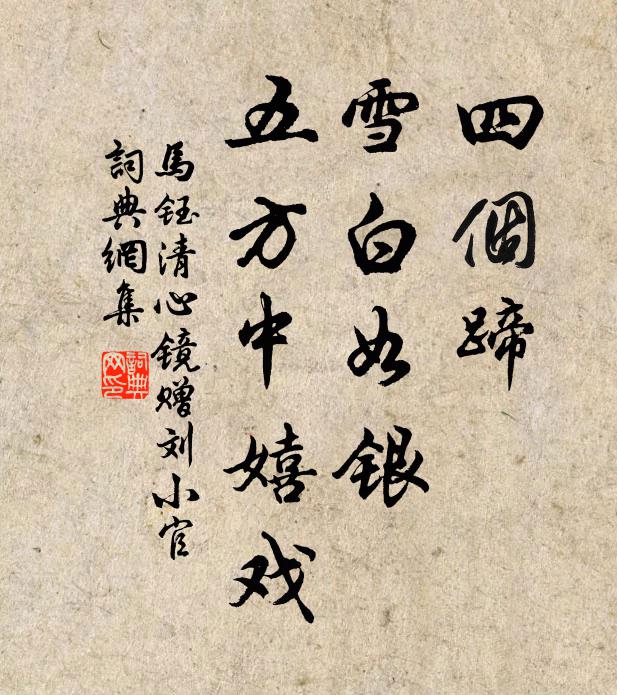 四個蹄
雪白如银
五方中嬉戏
馬钰清心镜赠刘小官
詞典網集
詞典
网印